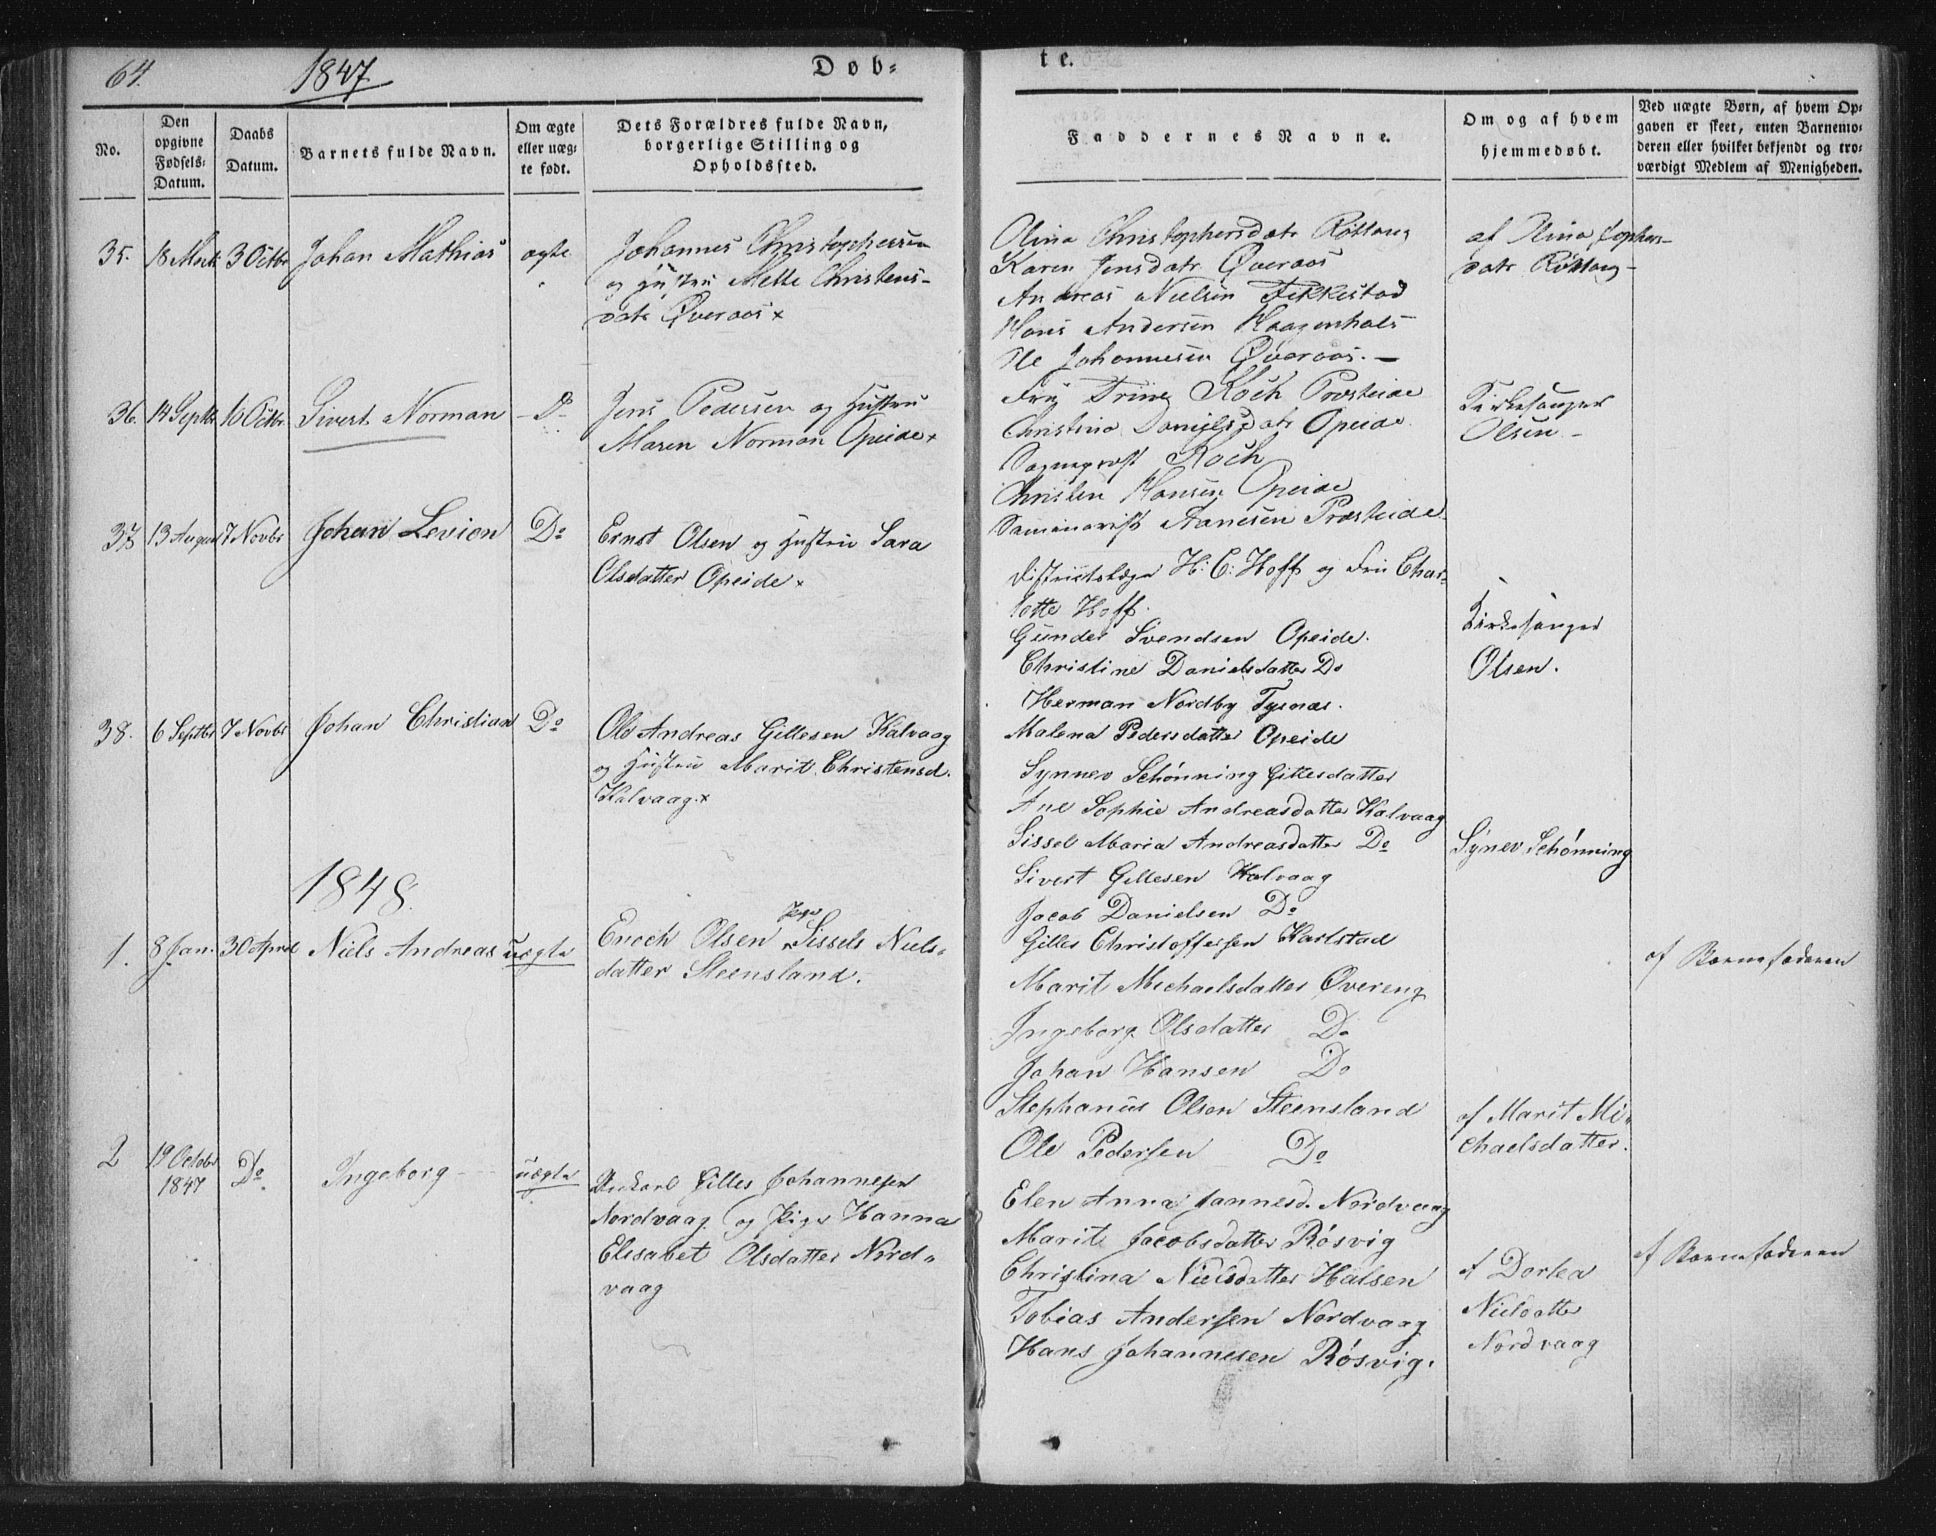 64.
1847
Døb-
te.
No.
Den opgivne Fødsels-Datum.
Daabs Datum.
Barnets fulde Navn.
Om ægte eller uæg-te født.
Dets Forældres fulde Navn, borgerlige Stilling og Opholdssted.
Faddernes Navne.
Om og af hvem hjemmedøbt.
Ved uægte Børn, af hvem Op-
gaven er skeet, enten Barnemo-
deren eller hvilket bekjendt og tro-
værdigt Medlem af Menigheden.
35. 3 Octbr Johan Mathias ægte
Johannes Christophersen
og Hustru Mette Christens-
datr Øveraas x
Olina Christophersdatr
Karen Jensdatr Øveraas
Andreas Nielsen
Hans Andersen Haagenhals
Ole Johannesen Øveraas. —
af Olina
datr
36. 14 Septbr 10 Octbr. Sivert Norman Do
Jens Pedersen og Hustru
Maren Norman Opeide x
Fru Trine Koch Præsteide
Christina Danielsdatr Opeide
Sogneprest Koch
Christen Hansen Opeide
Seminarist Aanesen Præsteide
Kirkesanger
Olsen
37. 13 August 7 Novbr Johan Levion Do
Ernst Olsen og Hustru Sara
Olsdatter Opeide x
Districtslæge H: C: Hoff og Fru Char-
lotte Hoff.
Gunder Svendsen Opeide.
Christine Danielsdatter Do
Herman Nordby Tysnæs.
Malena Pedersdatter Opeide
Kirkesanger
Olsen.
38. 6 Septbr 7 Novbr Johan Christian Do
Ole Andreas Gillesen Kalvaag
og Hustru Marit Christensd.
Kalvaag. x
Synnev Schønning Gillesdatter
Ane Sophie Andreasdatter Kalvaag
Sissel Maria Andreasdatter Do
Sivert Gillesen Kalvaag
Jacob Danielsen Do
Gilles Christoffersen Karlstad
Synev Schønning
1848.
1. 8 Jan. 30 April Niels Andreas uægte
Enoch Olsen Pige Sissels Niels-
datter Steensland.
Marit Michaelsdatter Overeng
Ingeborg Olsdatter Do
Johan Hansen Do
Stephanus Olsen Steensland
Ole Pedersen Do
af Marit Mi-
chaelsdatter.
af Barnefaderen
2 19 Octobr 1847 Do Ingeborg uægte
Ungkarl Gilles Johannesen
Nordvaag og Pige Hanna
Elisabet Olsdatter Nord-
vaag
Elen Anna Hannesd. Nordvaag
Marit Jacobsdatter Røsvig
Christina Nielsdatter Halsen
Tobias Andersen Nordvaag
Hans Johannesen Røsvig.
af Dortea
Nielsdatter
Nordvaag
af Barnefaderen